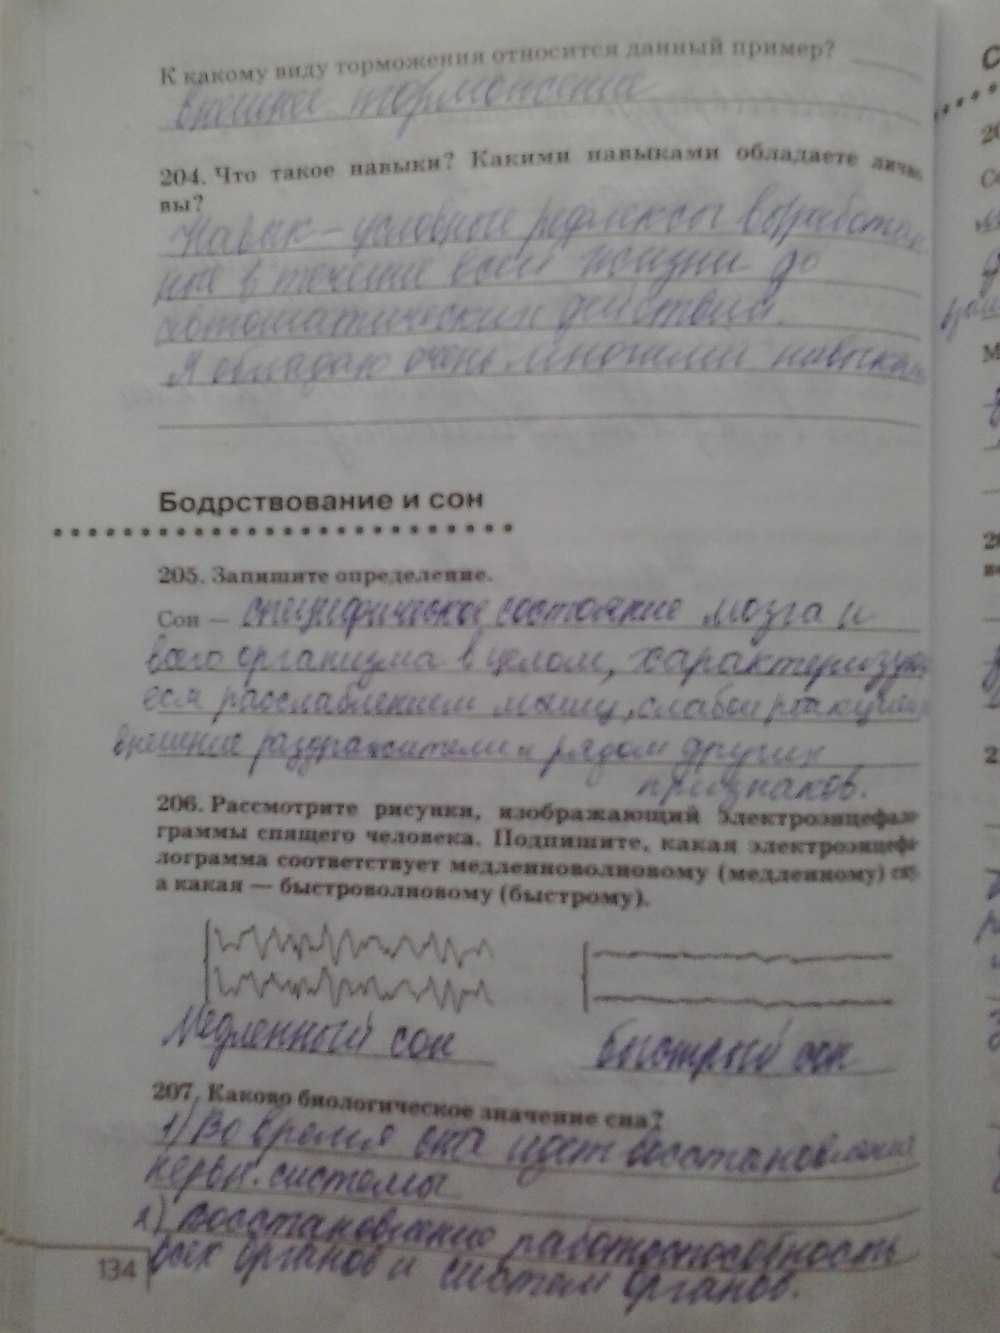 К какому виду торможения относится данный пример?
внешнее торможение
204. Что такое навыки? Какими навыками обладаете лично
вы?
Навык – условные рефлексы выработан
ные в течение всей жизни до
автоматических действий.
Я обладаю очень многими навыками
Бодрствование и сон
205. Запишите определение.
Сон — специфическое состояние мозга и
всего организма в целом, характеризую
еся расслаблением мышц, слабой реакцией
внешние раздражители и рядом других
признаков.
206. Рассмотрите рисунки, изображающий электроэнцефало-
граммы спящего человека. Подпишите, какая электроэнцефа-
лограмма соответствует медленноволновому (медленному) сну,
а какая — быстроволновому (быстрому).
Медленный сон
быстрый сон
207. Каково биологическое значение сна?
1) Во время сна идет восстановление
нервн. системы
2) восстановление работоспособность
всех органов и систем органов.
134